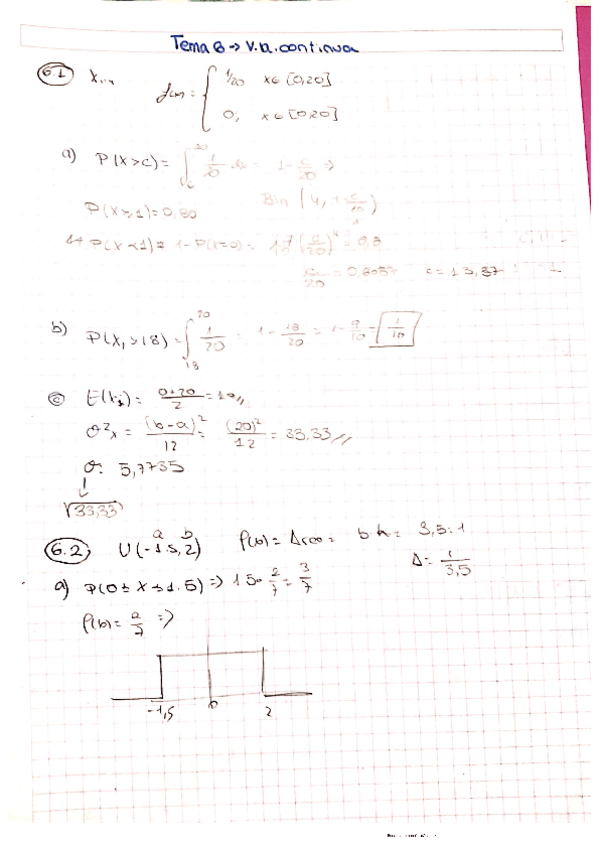 Tema 6 → V.a. continua
6.1 X f(x) = { 1/20 x∈[0,20]
0, x∈[0,20]
a) P(X>c) = ∫ 1/20 dx = 1 - c/20 ⇒
P(X≥1) = 0,80 Bin (4, 1-c/20)
P(X<1) = 1-P(X=0) = (c/20)⁴ = 0,8
c/20 = c = 13,37
b) P(X₁>18) = ∫ 20 18 1/20 = 1 - 18/20 = 1 - 9/10 = 1/10
c) E(Xi) = 0+20/2 = 10//
σ²x = (b-a)²/12 = (20)²/12 = 33,33//
σ: 5,7735
↓
√33,33
6.2 U(-1.5, 2) a b f(x) = Área = b·h = 3,5·1
Δ = 1/3,5
a) P(0≤X≤1.5) ⇒ 1.5· 2/7 = 3/7
f(x) = 2/7 ⇒
-1,5 0 2